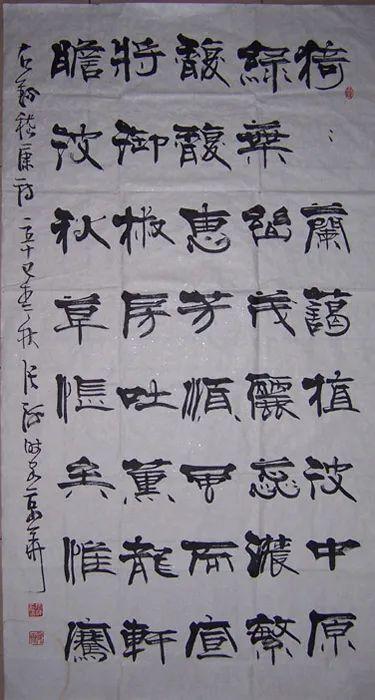 猗〻蘭藹植彼中原
綠葉幽茂麗蕊濃繁
馥馥惠芳順風而宣
將御椒房吐薰龍軒
瞻彼秋草悵矣惟騫
右錄嵇康詩